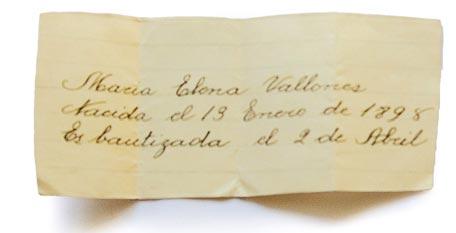 Maria Elena Vallones
Nacida el 13 Enero de 1898
Es bautizada el 2 de Abril